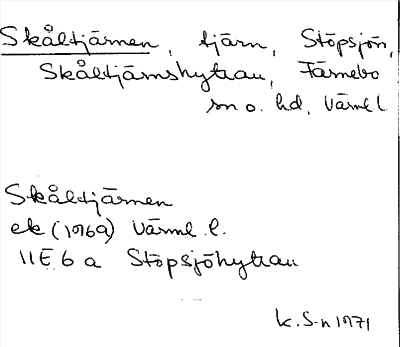 Skåltjärnen, tjärn, Stöpsjön,
Skåltjärnshyttan, Färnebo
sn o. hd, Värml l.
Skåltjärnen
ek (1969) Värml l.
11E 6 a Stöpsjöhyttan
K. S-n 1971